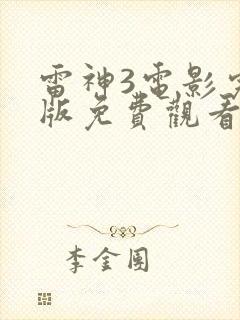 雷神3電影完
版免費觀看
李金圓